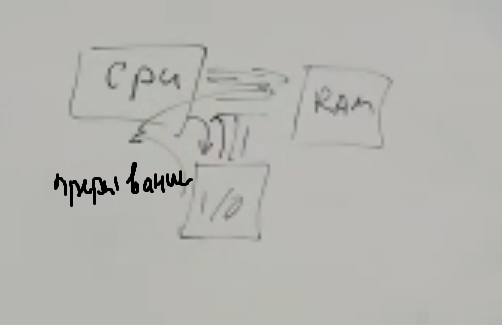 CPU
RAM
прерывание
I/O